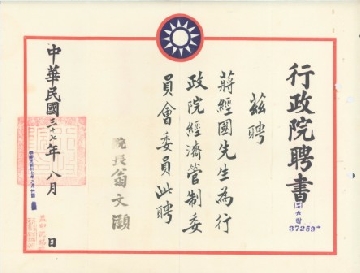 行政院聘書
37269
茲聘
蔣經國先生為行
政院經濟管制委
員會委員此聘
院長翁文灝
中華民國三十七年八月 日